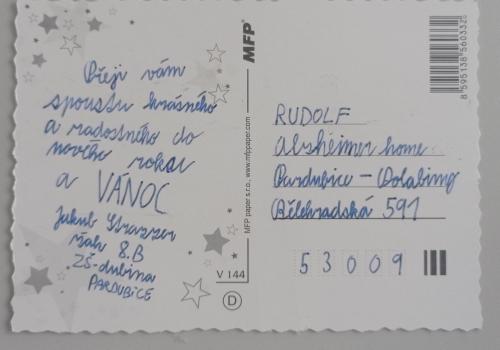 Přeji vám
spoustu krásného
a radostného do
nového roku
a VÁNOC
Jakub
žák 8.B
ZŠ-dubina
PARDUBICE
MFP
MFP paper s.r.o., www.mfppaper.com
V 144
D
8595138560332
RUDOLF
Alzheimer home
Pardubice - Polabiny
Bělehradská 591
53009